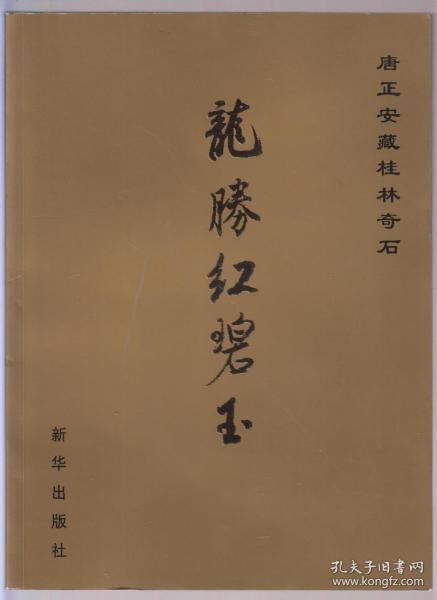 唐正安藏桂林奇石
龍勝红碧玉
新华出版社
孔夫子旧书网
www.kongfz.com